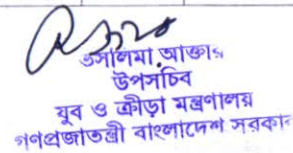 তসলিমা আক্তার
উপসচিব
যুব ও ক্রীড়া মন্ত্রণালয়
গণপ্রজাতন্ত্রী বাংলাদেশ সরকার